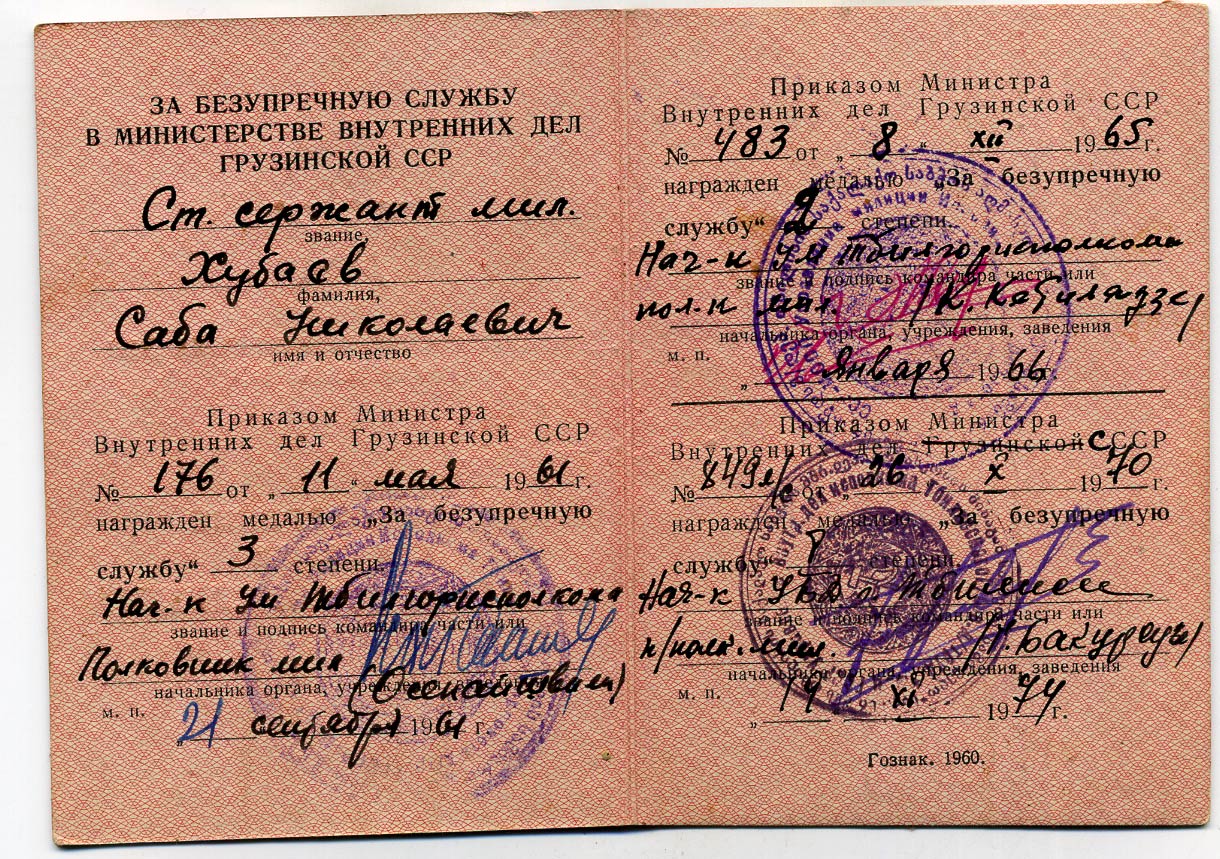 ЗА БЕЗУПРЕЧНУЮ СЛУЖБУ
В МИНИСТЕРСТВЕ ВНУТРЕННИХ ДЕЛ
ГРУЗИНСКОЙ ССР
Ст. сержант мил.
звание,
Хубаев
фамилия,
Саба Николаевич
имя и отчество
Приказом Министра
Внутренних дел Грузинской ССР
№ 176 от „ 11 “ мая 1961 г.
награжден медалью „За безупречную
службу“ 3 степени.
Нач-к Ум Тбилгорисполкома
звание и подпись командира части или
Полковник мил
начальника органа, учреждения, заведения
м. п.
„ 21 сентября 1961 г.
Приказом Министра
Внутренних дел Грузинской ССР
№ 483 от „ 8 “ XII 1965 г.
награжден медалью „За безупречную
службу“ 2 степени.
Нач-к Ум Тбилгорисполкома
звание и подпись командира части или
пол-к мил. /К. Кобиладзе/
начальника органа, учреждения, заведения
м. п.
„ января 1966 г.
Приказом Министра
Внутренних дел Грузинской СССР
№ 849 от „ 26 X 1970 г.
награжден медалью „За безупречную
службу“ I степени.
Нач-к УВД
звание и подпись командира части или
п/полк. мил.
начальника органа, учреждения, заведения
м. п.
„ 14 XI 1974 г.
Гознак. 1960.